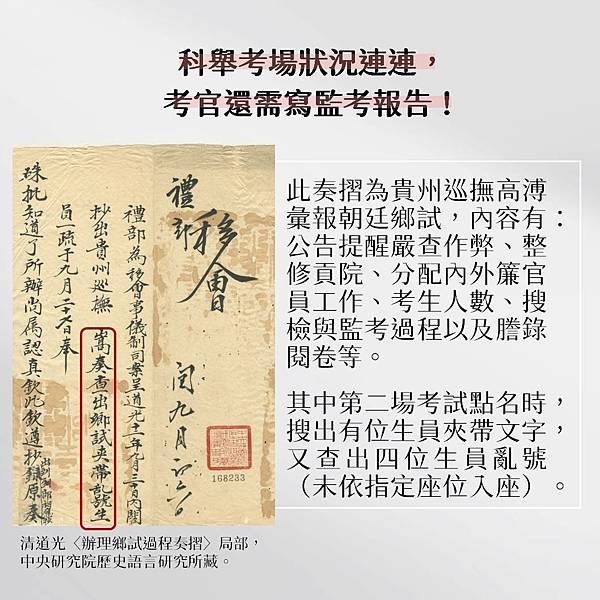 科舉考場狀況連連，
考官還需寫監考報告！
禮部移會
閏九月
禮部為移會事儀制司案呈道光十二年九月三十日內閣
抄出貴州巡撫 嵩奏查出鄉試夾帶亂號生
員一疏于九月二十七日奉
硃批知道了所辦尚属認真欽此欽遵抄錄原奏
168233
此奏摺為貴州巡撫高溥
彙報朝廷鄉試，內容有：
公告提醒嚴查作弊、整
修貢院、分配內外簾官
員工作、考生人數、搜
檢與監考過程以及謄錄
閱卷等。
其中第二場考試點名時，
搜出有位生員夾帶文字，
又查出四位生員亂號
（未依指定座位入座）。
清道光〈辦理鄉試過程奏摺〉局部，
中央研究院歷史語言研究所藏。